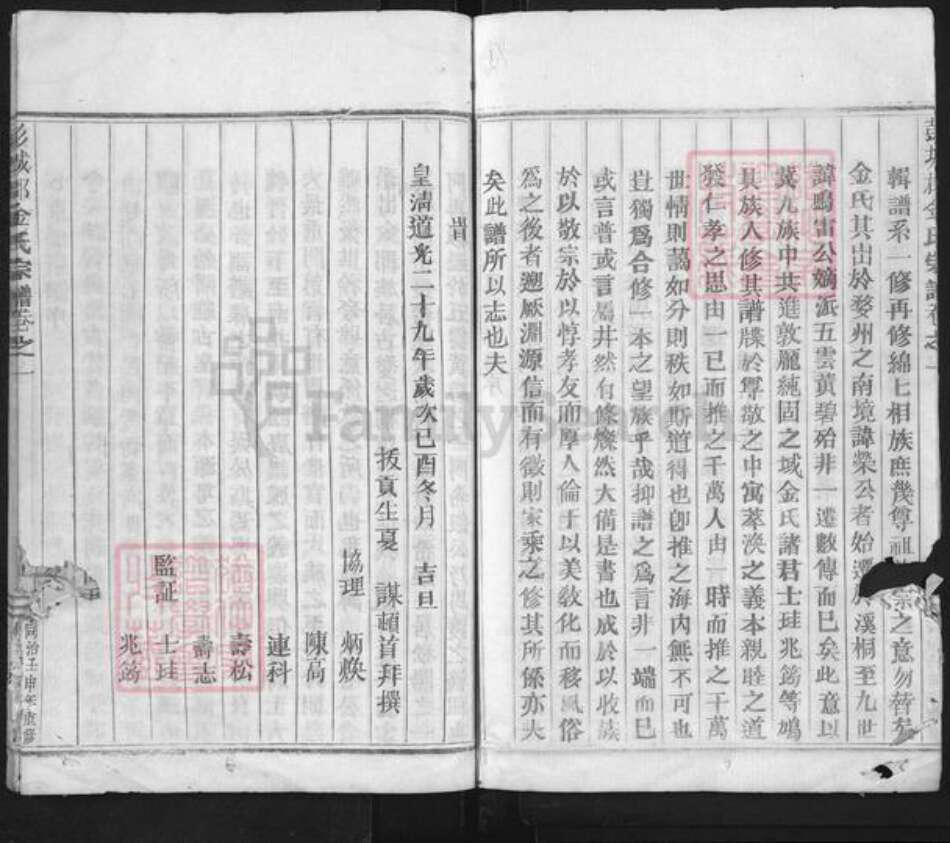 輯譜系一修再修綿上相族庶幾尊祖宗之意勿替矣
金氏其出於婺州之南境諱榮公者始遷於溪桐至九世
諱鳴雷公嫡派五雲黃碧殆非一遷數傳而已矣此意以
冀九族中共進敦龐純固之域金氏諸君士珪兆鎊等鳩
其族人修其譜牒於尊敬之中寓萃渙之義本親睦之道
發仁孝之思由一己而推之千萬人由一時而推之千萬
世情則藹如分則秩如斯道得也卽推之海內無不可也
豈獨爲合修一本之望族乎哉抑譜之爲言非一端而已
或言普或言屬井然有條燦然大備是書也成於以收族
於以敬宗於以惇孝友而厚人倫于以美敎化而移風俗
爲之後者遡厥淵源信而有徵則家乘之修其所係亦大
矣此譜所以志也夫
皇淸道光二十九年歲次己酉冬月 吉旦
拔貢生夏 謀頓首拜撰
協理 炳煥
陳高
連科
壽松
壽志
監証 士珪
兆鎊
彭城郡金氏宗譜卷之一
同治壬申年重修
FamilySearch